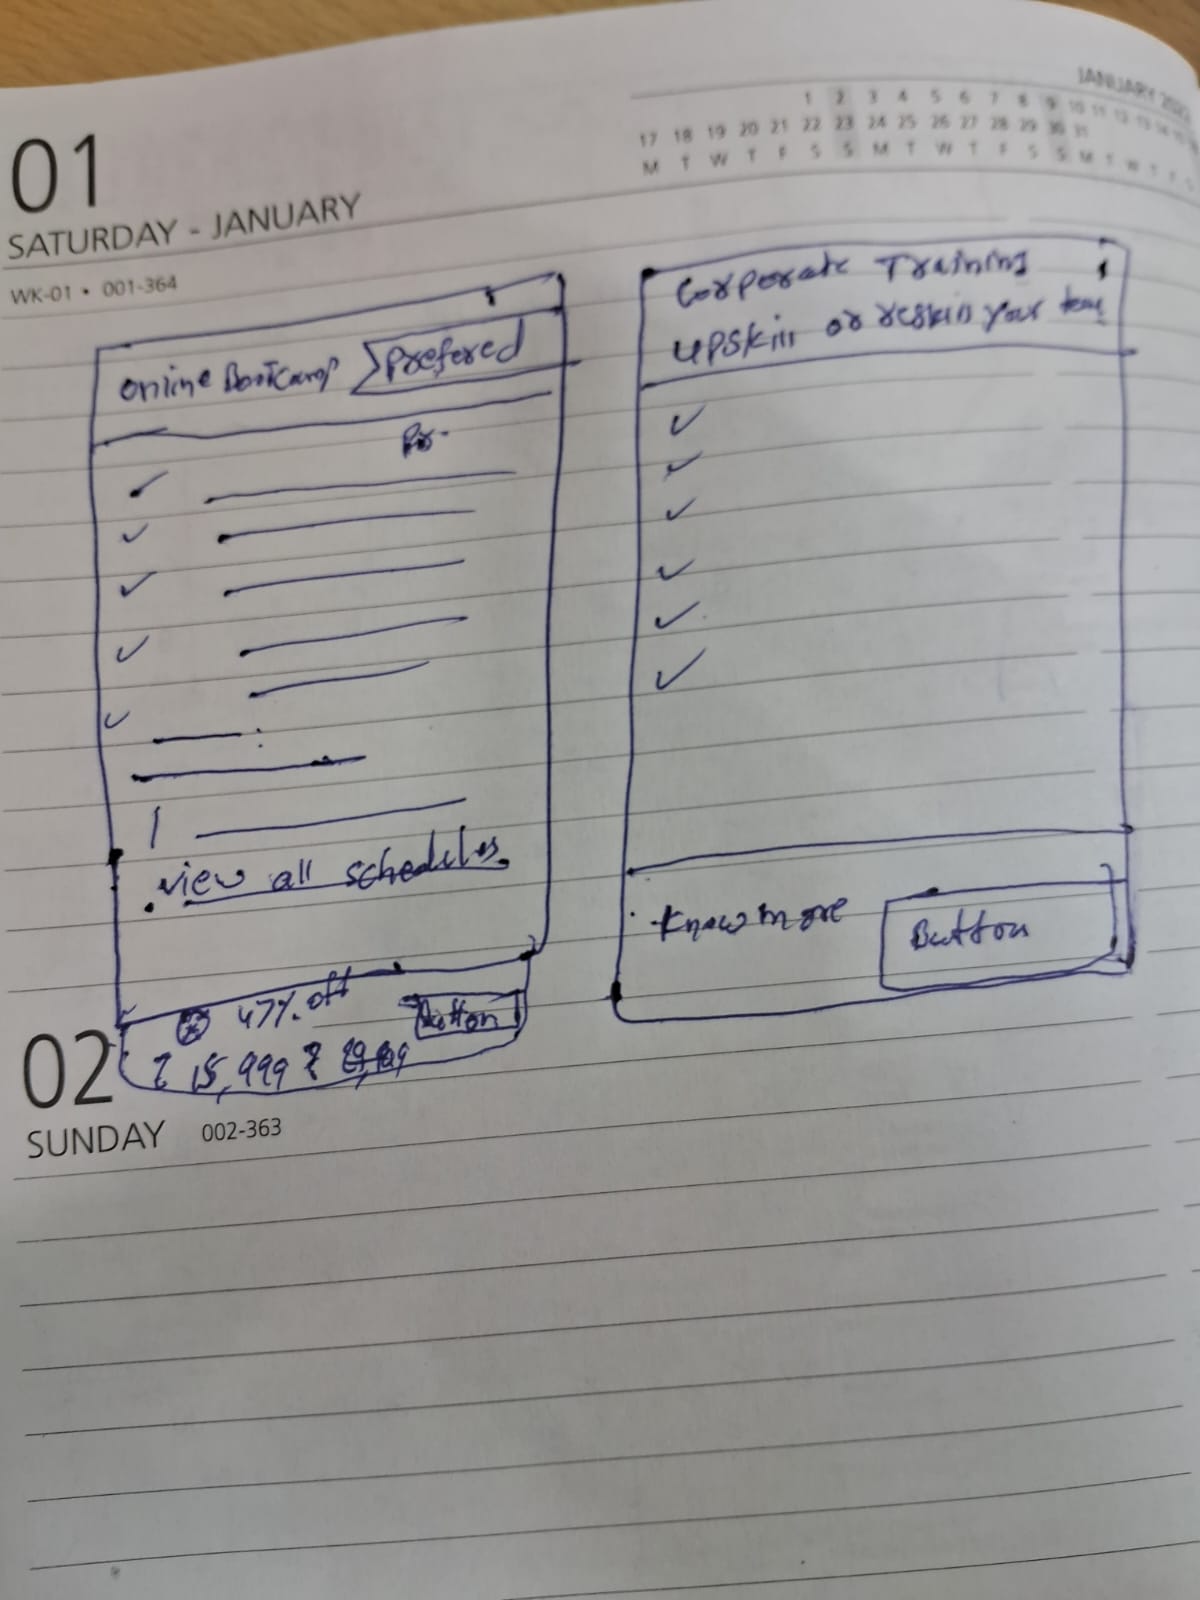 JANUARY
1 2 3 4 5 6 7 8 9 10 11 12 13 14 15
17 18 19 20 21 22 23 24 25 26 27 28 29 30 31
M T W T F S S M T W T F S S M T W T F S
01
SATURDAY - JANUARY
WK-01 • 001-364
Online BootCamp prefered
✓
✓
✓
✓
✓
view all schedules
47% off Button
₹ 15,999 ₹
Corporate Training
upskill or reskill your team
✓
✓
✓
✓
✓
✓
Know more Button
02
SUNDAY 002-363